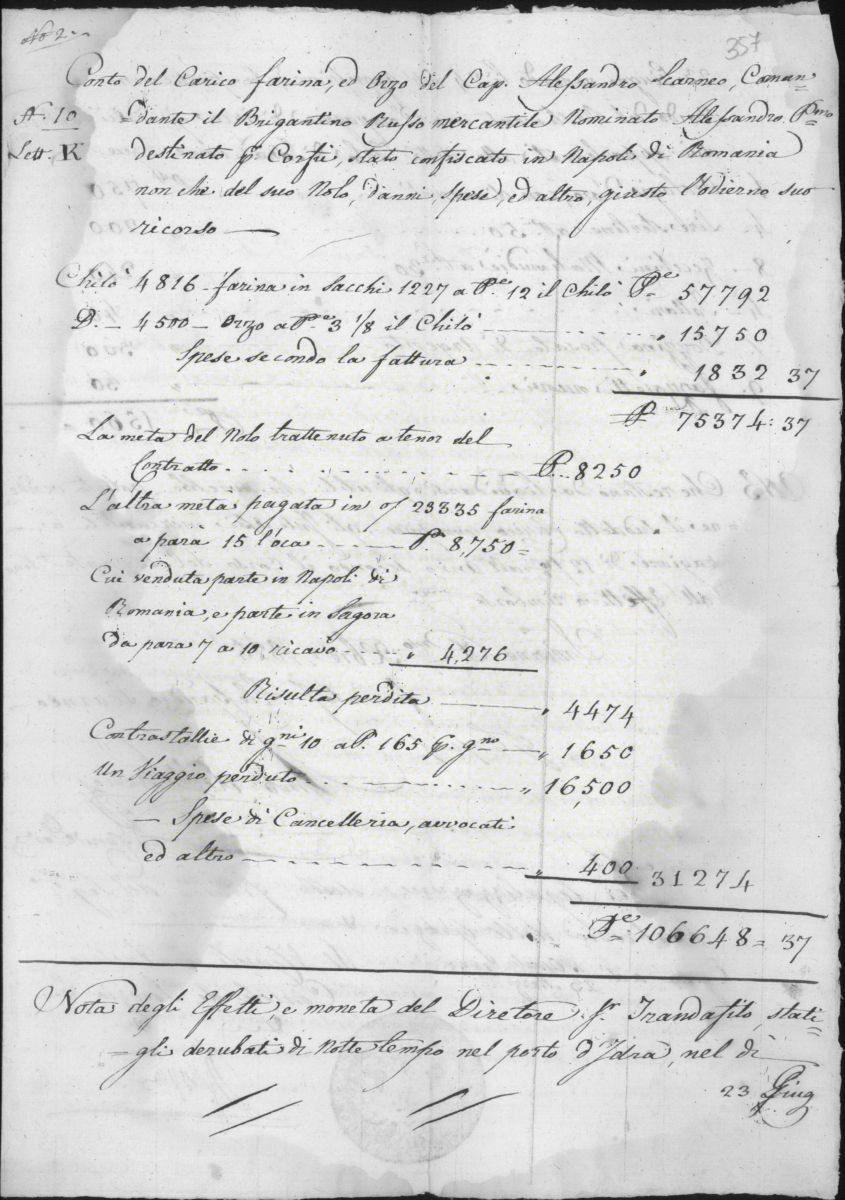 No 2.
357
Conto del Carico farina, ed Orzo del Cap. Alessandro Scarneo, Coman=
=dante il Brigantino Russo mercantile Nominato Alessandro Pmo
No. 10
Lett. K
destinato p Corfù, stato confiscato in Napoli di Romania
non che del suo Nolo, danni, spese, ed altro, giusto l'odierno suo
ricorso —
Chilò 4816 - farina in sacchi 1227 a Pre 12 il Chilò Pe 57792
D. — 4500 — Orzo a Pre 3 1/8 il Chilò " 15750
Spese secondo la fattura " 1832 37
P 75374: 37
La metà del Nolo trattenuto a tenor del
Contratto P. 8250
L'altra metà pagata in 23335 farina
a parà 15 l'oca P. 8,750=
Cui venduta parte in Napoli di
Romania, e parte in Sagora
da para 7 a 10 ricavo " 4,276
Risulta perdita " 4474
Contrastallie di gni 10 a P. 165 p. gno " 1650
Un Viaggio perduto " 16,500
— Spese di Cancelleria, avvocati
ed altro " 400 31274
Pe 106648= 37
Nota degli Effetti, e moneta del Diretore Sr Trandafilo, stati=
=gli derubati di Notte tempo nel porto d'Idra, nel dì
23 Giug